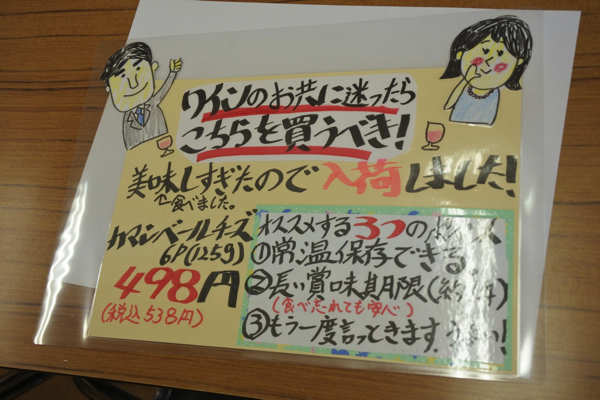 ワインのお共に迷ったら
こちらを買うべき!
美味しすぎたので入荷しました!
←食べました。
カマンベールチーズ
6P(125g)
498円
(税込538円)
オススメする3つのポイント
①常温保存できる
②長い賞味期限(約
(食べ忘れても安心)
③もう一度言っときます